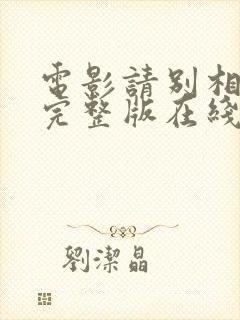 電影請別相
完整版在綫
劉潔晶